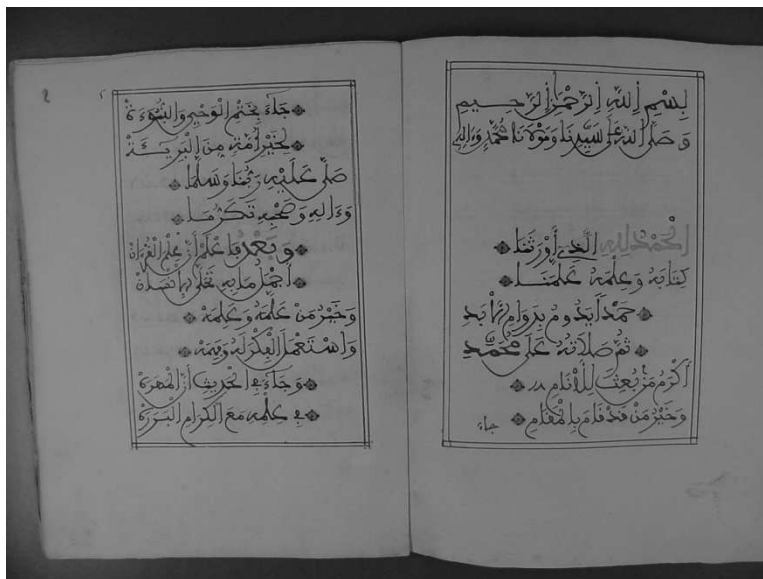 بِسْمِ اِللَّهِ اِلرَّحْمَٰنِ اِلرَّحِيمِ
وَصَلَّى اَللَّهُ عَلَى سَيِّدِنَا وَمَوْلَانَا مُحَمَّدٍ وَءَالِهِ
اَلْحَمْدُ لِلهِ اِلَّذِے أَوْرَثَنَا
كِتَابَهُ وَعِلْمَهُ عَلَّمَنَا
حَمْداً يَدُومُ بِدَوَامِ الْأَبَدِ
ثُمَّ صَلَاتُهُ عَلَى مُحَمَّدِ
أَكْرَمِ مَنْ بُعِثَ لِلْأَنَامِ
وَخَيْرِ مَنْ قَدْ قَامَ بِالْمَقَامِ
جاء
٢
جَاءَ بِخَتْمِ الْوَحْيِ وَالنُّبُوءَةْ
لِخَيْرِ أُمَّةٍ مِنَ الْبَرِيَّةْ
صَلَّى عَلَيْهِ رَبُّنَا وَسَلَّمَا
وَءَالِهِ وَصَحْبِهِ تَكَرُّمَا
وَبَعْدُ فَاعْلَمْ أَنَّ عِلْمَ الْقُرْآنْ
أَجْمَلُ مَا بِهِ تَحَلَّى الْإِنْسَانْ
وَخَيْرُ مَنْ عَلَّمَهُ وَعَلِمَهْ
وَاسْتَعْمَلَ الْفِكْرَ لَهُ وَفَهِمَهْ
وَجَاءَ فِے الْحَدِيثِ أَنَّ الْمَهَرَةْ
فِے عِلْمِهِ مَعَ الْكِرَامِ الْبَرَرَةْ